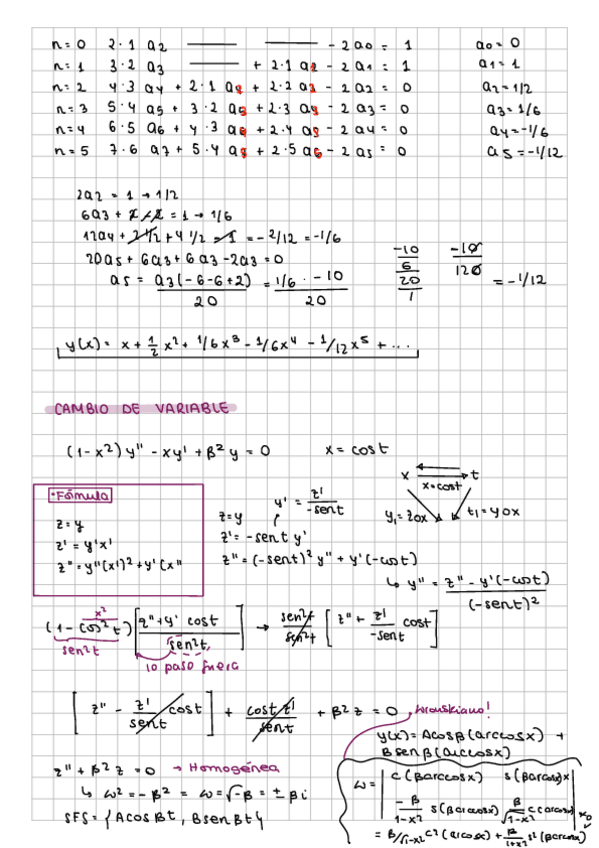 n=0 2·1 a2 —— —— - 2a0 = 1 a0=0
n=1 3·2 a3 —— + 2·1 a2 - 2a1 = 1 a1=1
n=2 4·3 a4 + 2·1 a2 + 2·2 a3 - 2a2 = 0 a2=1/2
n=3 5·4 a5 + 3·2 a3 + 2·3 a4 - 2a3 = 0 a3=1/6
n=4 6·5 a6 + 4·3 a + 2·4 a5 - 2a4 = 0 a4=-1/6
n=5 7·6 a7 + 5·4 a + 2·5 a6 - 2a5 = 0 a5=-1/12
2a2 = 1 → 1/2
6a3 + 2 - 2 = 1 → 1/6
12a4 + 2 1/2 + 4 1/2 = 1 = -2/12 = -1/6
20a5 + 6a3 + 6a3 - 2a3 = 0
a5 = a3(-6-6+2)/20 = 1/6 · -10/20
-10/6 / 20/1 -10/120 = -1/12
y(x) = x + 1/2 x² + 1/6x³ - 1/6x⁴ - 1/12x⁵ + ...
CAMBIO DE VARIABLE
(1-x²)y'' - xy' + β²y = 0 x = cost
x t
x=cost
y1=zox t1=yox
•Fórmula
z=y
z'=y'x'
z''=y''(x')²+y'(x''
z=y y' = z'/-sent
z'=-sent y'
z''=(-sent)²y''+y'(-cost)
↳ y'' = z''-y'(-cost)/(-sent)²
x²
(1-cos²t)[z''+y' cost/sen²t] → sen²t/sen²t [z''+ z'/-sent cost]
sen²t
lo paso fuera
[z'' - z'/sent cost] + cost z'/sent + β²z = 0
wronskiano!
y(x)=Acosβ(arccosx) +
Bsenβ(arccosx)
z''+β²z=0 → Homogénea
↳ ω²=-β² = ω=√-β = ±βi
SFS={Acosβt, Bsenβt}
ω = | c(βarccosx) s(βarcosx)x
-β/1-x² s(βarccosx) β/√1-x² c(arcosx) | x0
= β/√1-x² c²(arcosx) + β/1+x² s²(βarcosx)